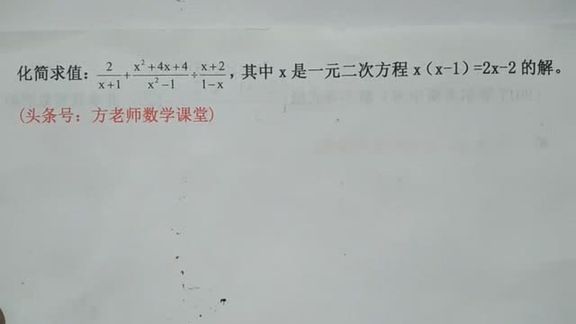 化简求值：2/(x+1)+(x²+4x+4)/(x²-1)÷(x+2)/(1-x)，其中 x 是一元二次方程 x（x-1）=2x-2 的解。
(头条号：方老师数学课堂)